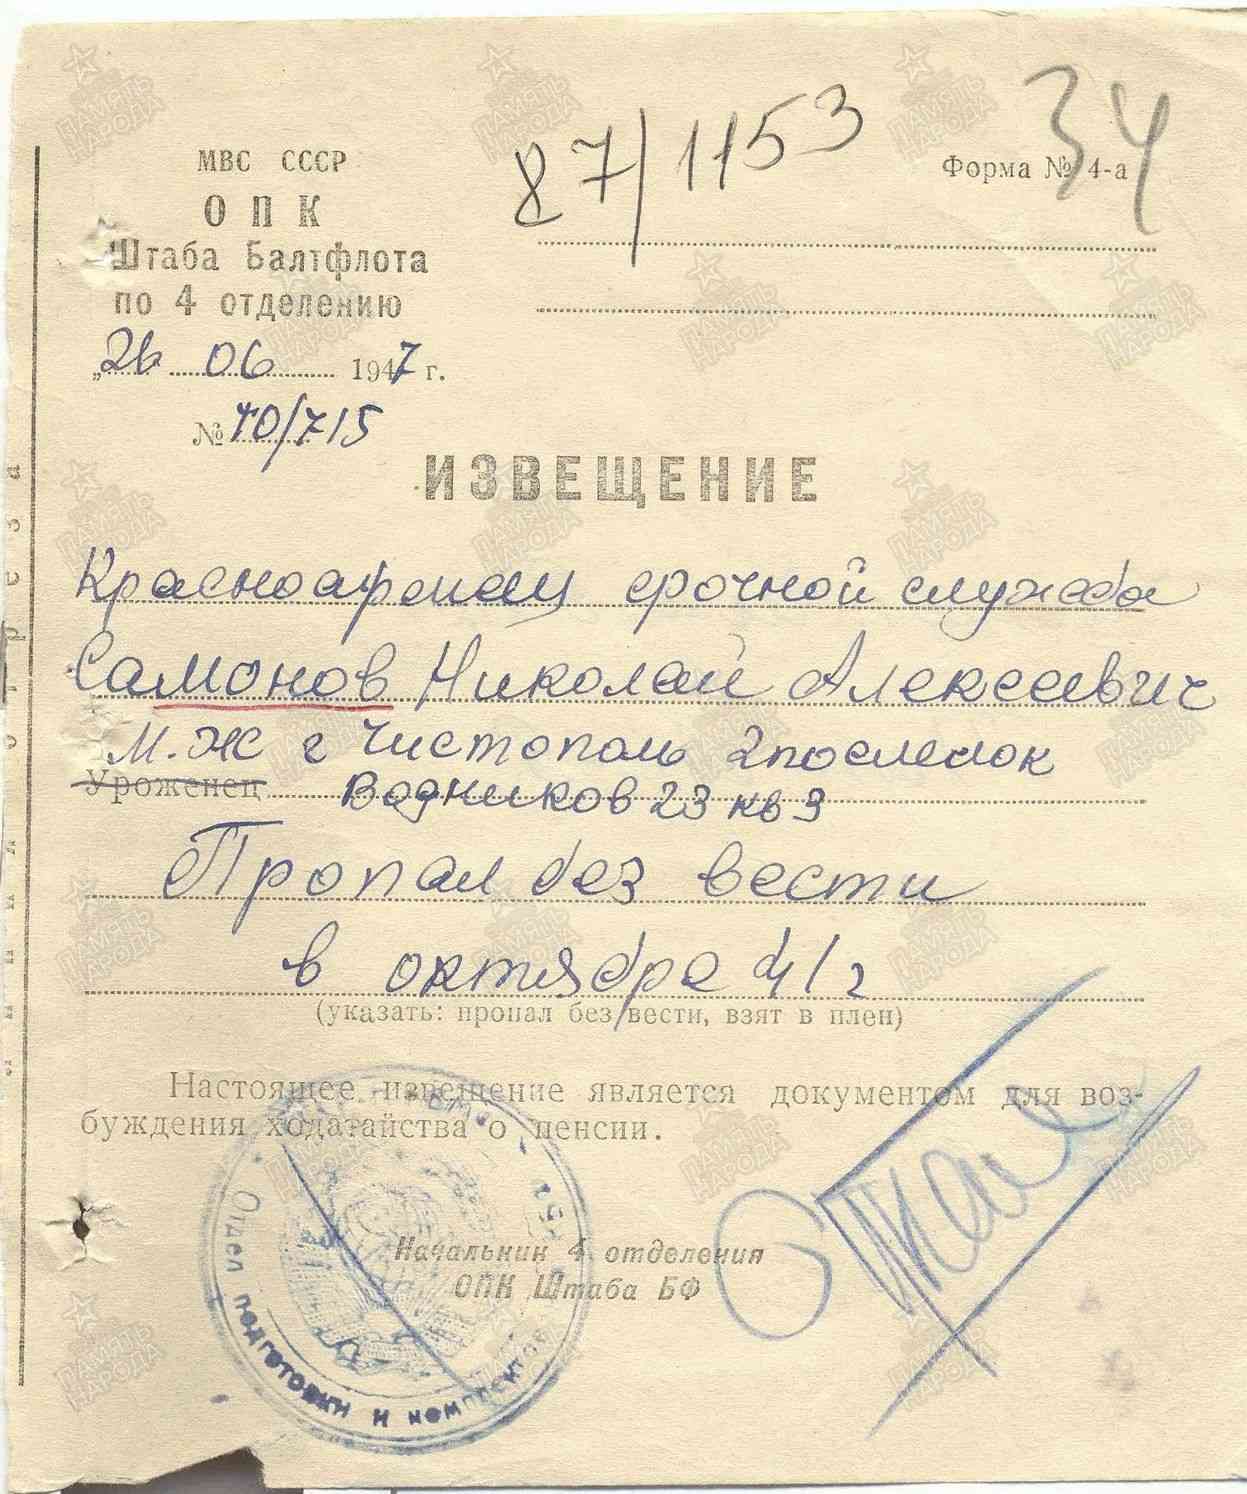 87/1153
34
МВС СССР
Форма № 4-а
ОПК
Штаба Балтфлота
по 4 отделению
„26 06 1947 г.
№ 40/715
ИЗВЕЩЕНИЕ
Красноармеец срочной службы
Самонов Николай Алексеевич
М.Ж г Чистополь 2 поселок
Уроженец Водников 23 кв 3
Пропал без вести
в октябре 41 г
(указать: пропал без вести, взят в плен)
Настоящее извещение является документом для воз-
буждения ходатайства о пенсии.
Начальник 4 отделения
ОПК Штаба БФ
Отдел подготовки и комплектов
Линия отреза
ПАМЯТЬ НАРОДА